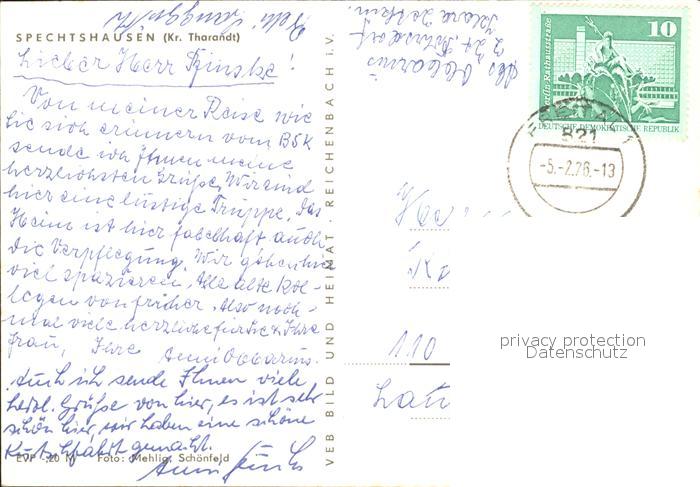 SPECHTSHAUSEN (Kr. Tharandt)
Lieber Herr
Von meiner Reise wie
Sie sich erinnern vom BSK
sende ich Ihnen meine
herzlichsten Grüße. Wir sind
hier eine lustige Truppe. Das
Heim ist hier fabelhaft auch
die Verpflegung. Wir gehen hier
viel spazieren. Alle alte Kol-
legen von früher. Also noch-
mal viele herzliche für Sie & Ihre
Frau, Ihre Anni
Auch ich sende Ihnen viele
herzl. Grüße von hier, es ist sehr
schön hier, wir haben eine schöne
Kutschfahrt gemacht.
EVP -,20 M Foto: Mehlig, Schönfeld
VEB BILD UND HEIMAT · REICHENBACH I. V.
Abs
10
Berlin-Rathausstraße
DEUTSCHE DEMOKRATISCHE REPUBLIK
FREITAL 1
821
-5.-2.76.-13
110
privacy protection
Datenschutz